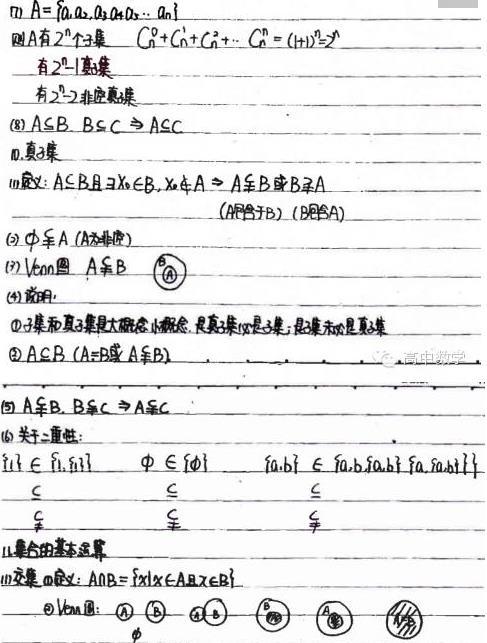 (7) A={a₁a₂,a₃a₄a₅…aₙ}
则A有2ⁿ个子集 Cₙ⁰+Cₙ¹+Cₙ²+…Cₙⁿ=(1+1)ⁿ=2ⁿ
有2ⁿ-1真子集
有2ⁿ-2非空真子集
(8) A⊆B, B⊆C ⇒ A⊆C
10.真子集
(1)定义: A⊆B且∃x₀∈B, x₀∉A ⇒ A⫋B或B⫌A
(A包含于B) (B包含A)
(2) ф⫋A (A为非空)
(3) Venn图 A⫋B B A
(4)说明:
①子集和真子集是大概念小概念,是真子集必是子集;是子集未必是真子集
②A⊆B (A=B或A⫋B)
高中数学
(5) A⫋B, B⫋C ⇒ A⫋C
(6)关于二重性:
{1} ∈ {1,{1}} ф ∈ {ф} {a,b} ∈ {a,b,{a,b}{a,{a,b}}}
⊆ ⊆ ⊆
⫋ ⫋ ⫋
11.集合的基本运算
(1)交集 ①定义: A∩B={x|x∈A且x∈B}
②Venn图: A B A B B A
ф